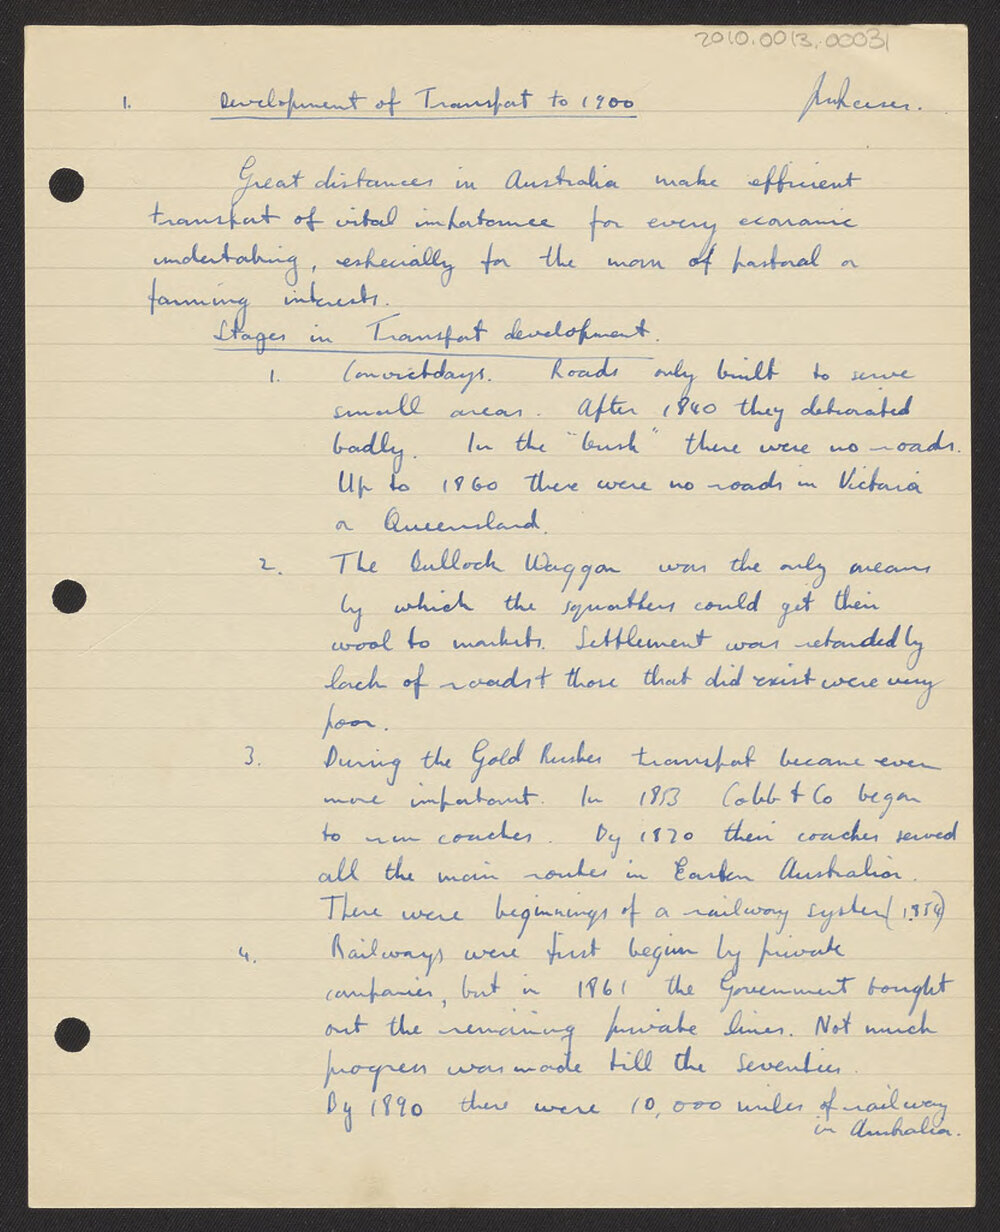 2010.0013.00031
1. Development of Transport to 1900
Great distances in Australia make efficient
transport of vital importance for every economic
undertaking, especially for the man of pastoral or
farming interests.
Stages in Transport development.
1. Convict days. Roads only built to serve
small areas. After 1840 they detiorated
badly. In the "bush" there were no roads.
Up to 1860 there were no roads in Victoria
or Queensland.
2. The Bullock Waggon was the only means
by which the squatters could get their
wool to markets. Settlement was retarded by
lack of roads & those that did exist were very
poor.
3. During the Gold Rushes transport became even
more important. In 1853 Cobb & Co began
to run coaches. By 1870 their coaches served
all the main routes in Eastern Australia.
There were beginnings of a railway system (1854)
4. Railways were first begun by private
companies, but in 1861 the Government bought
out the remaining private lines. Not much
progress was made till the seventies.
By 1890 there were 10,000 miles of railway
in Australia.